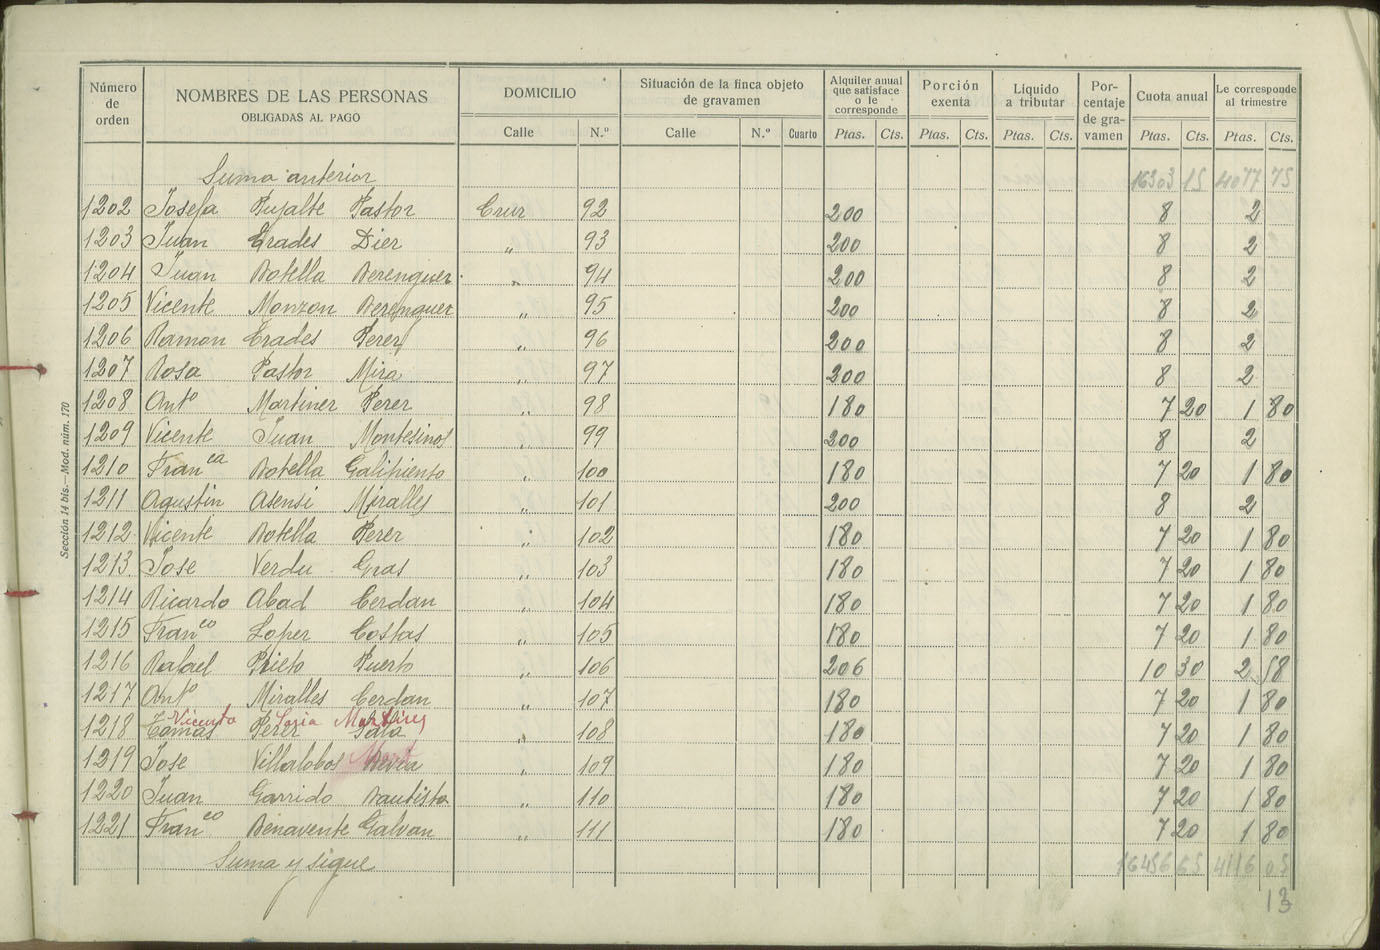 Número de orden | NOMBRES DE LAS PERSONAS OBLIGADAS AL PAGO | DOMICILIO | Situación de la finca objeto de gravamen | Alquiler anual que satisface o le corresponde | Porción exenta | Líquido a tributar | Por-centaje de gra-vamen | Cuota anual | Le corresponde al trimestre
Calle | N.º | Calle | N.º | Cuarto | Ptas. | Cts. | Ptas. | Cts. | Ptas. | Cts. | Ptas. | Cts. | Ptas. | Cts.
Suma anterior 16303 15 4077 75
1202 Josefa Pujalte Pastor Cruz 92 200 8 2
1203 Juan Grades Diez „ 93 200 8 2
1204 Juan Botella Berenguer „ 94 200 8 2
1205 Vicente Monzon Berenguer „ 95 200 8 2
1206 Ramon Grades Perez „ 96 200 8 2
1207 Rosa Pastor Mira „ 97 200 8 2
1208 Antº Martinez Perez „ 98 180 7 20 1 80
1209 Vicente Juan Montesinos „ 99 200 8 2
1210 Franca Botella Galipienso „ 100 180 7 20 1 80
1211 Agustin Asensi Miralles „ 101 200 8 2
1212 Vicente Botella Perez „ 102 180 7 20 1 80
1213 Jose Verdu Gras „ 103 180 7 20 1 80
1214 Ricardo Abad Cerdan „ 104 180 7 20 1 80
1215 Franco Lopez Costas „ 105 180 7 20 1 80
1216 Rafael Prieto Puerto „ 106 206 10 30 2 58
1217 Antº Miralles Cerdan „ 107 180 7 20 1 80
Vicente Soria Martinez
1218 Tomas Perez Sala „ 108 180 7 20 1 80
1219 Jose Villalobos „ 109 180 7 20 1 80
1220 Juan Garrido Bautista „ 110 180 7 20 1 80
1221 Franco Benavente Galvan „ 111 180 7 20 1 80
Suma y sigue 16456 65 4116 05
13
Sección 14 bis.—Mod. núm. 170